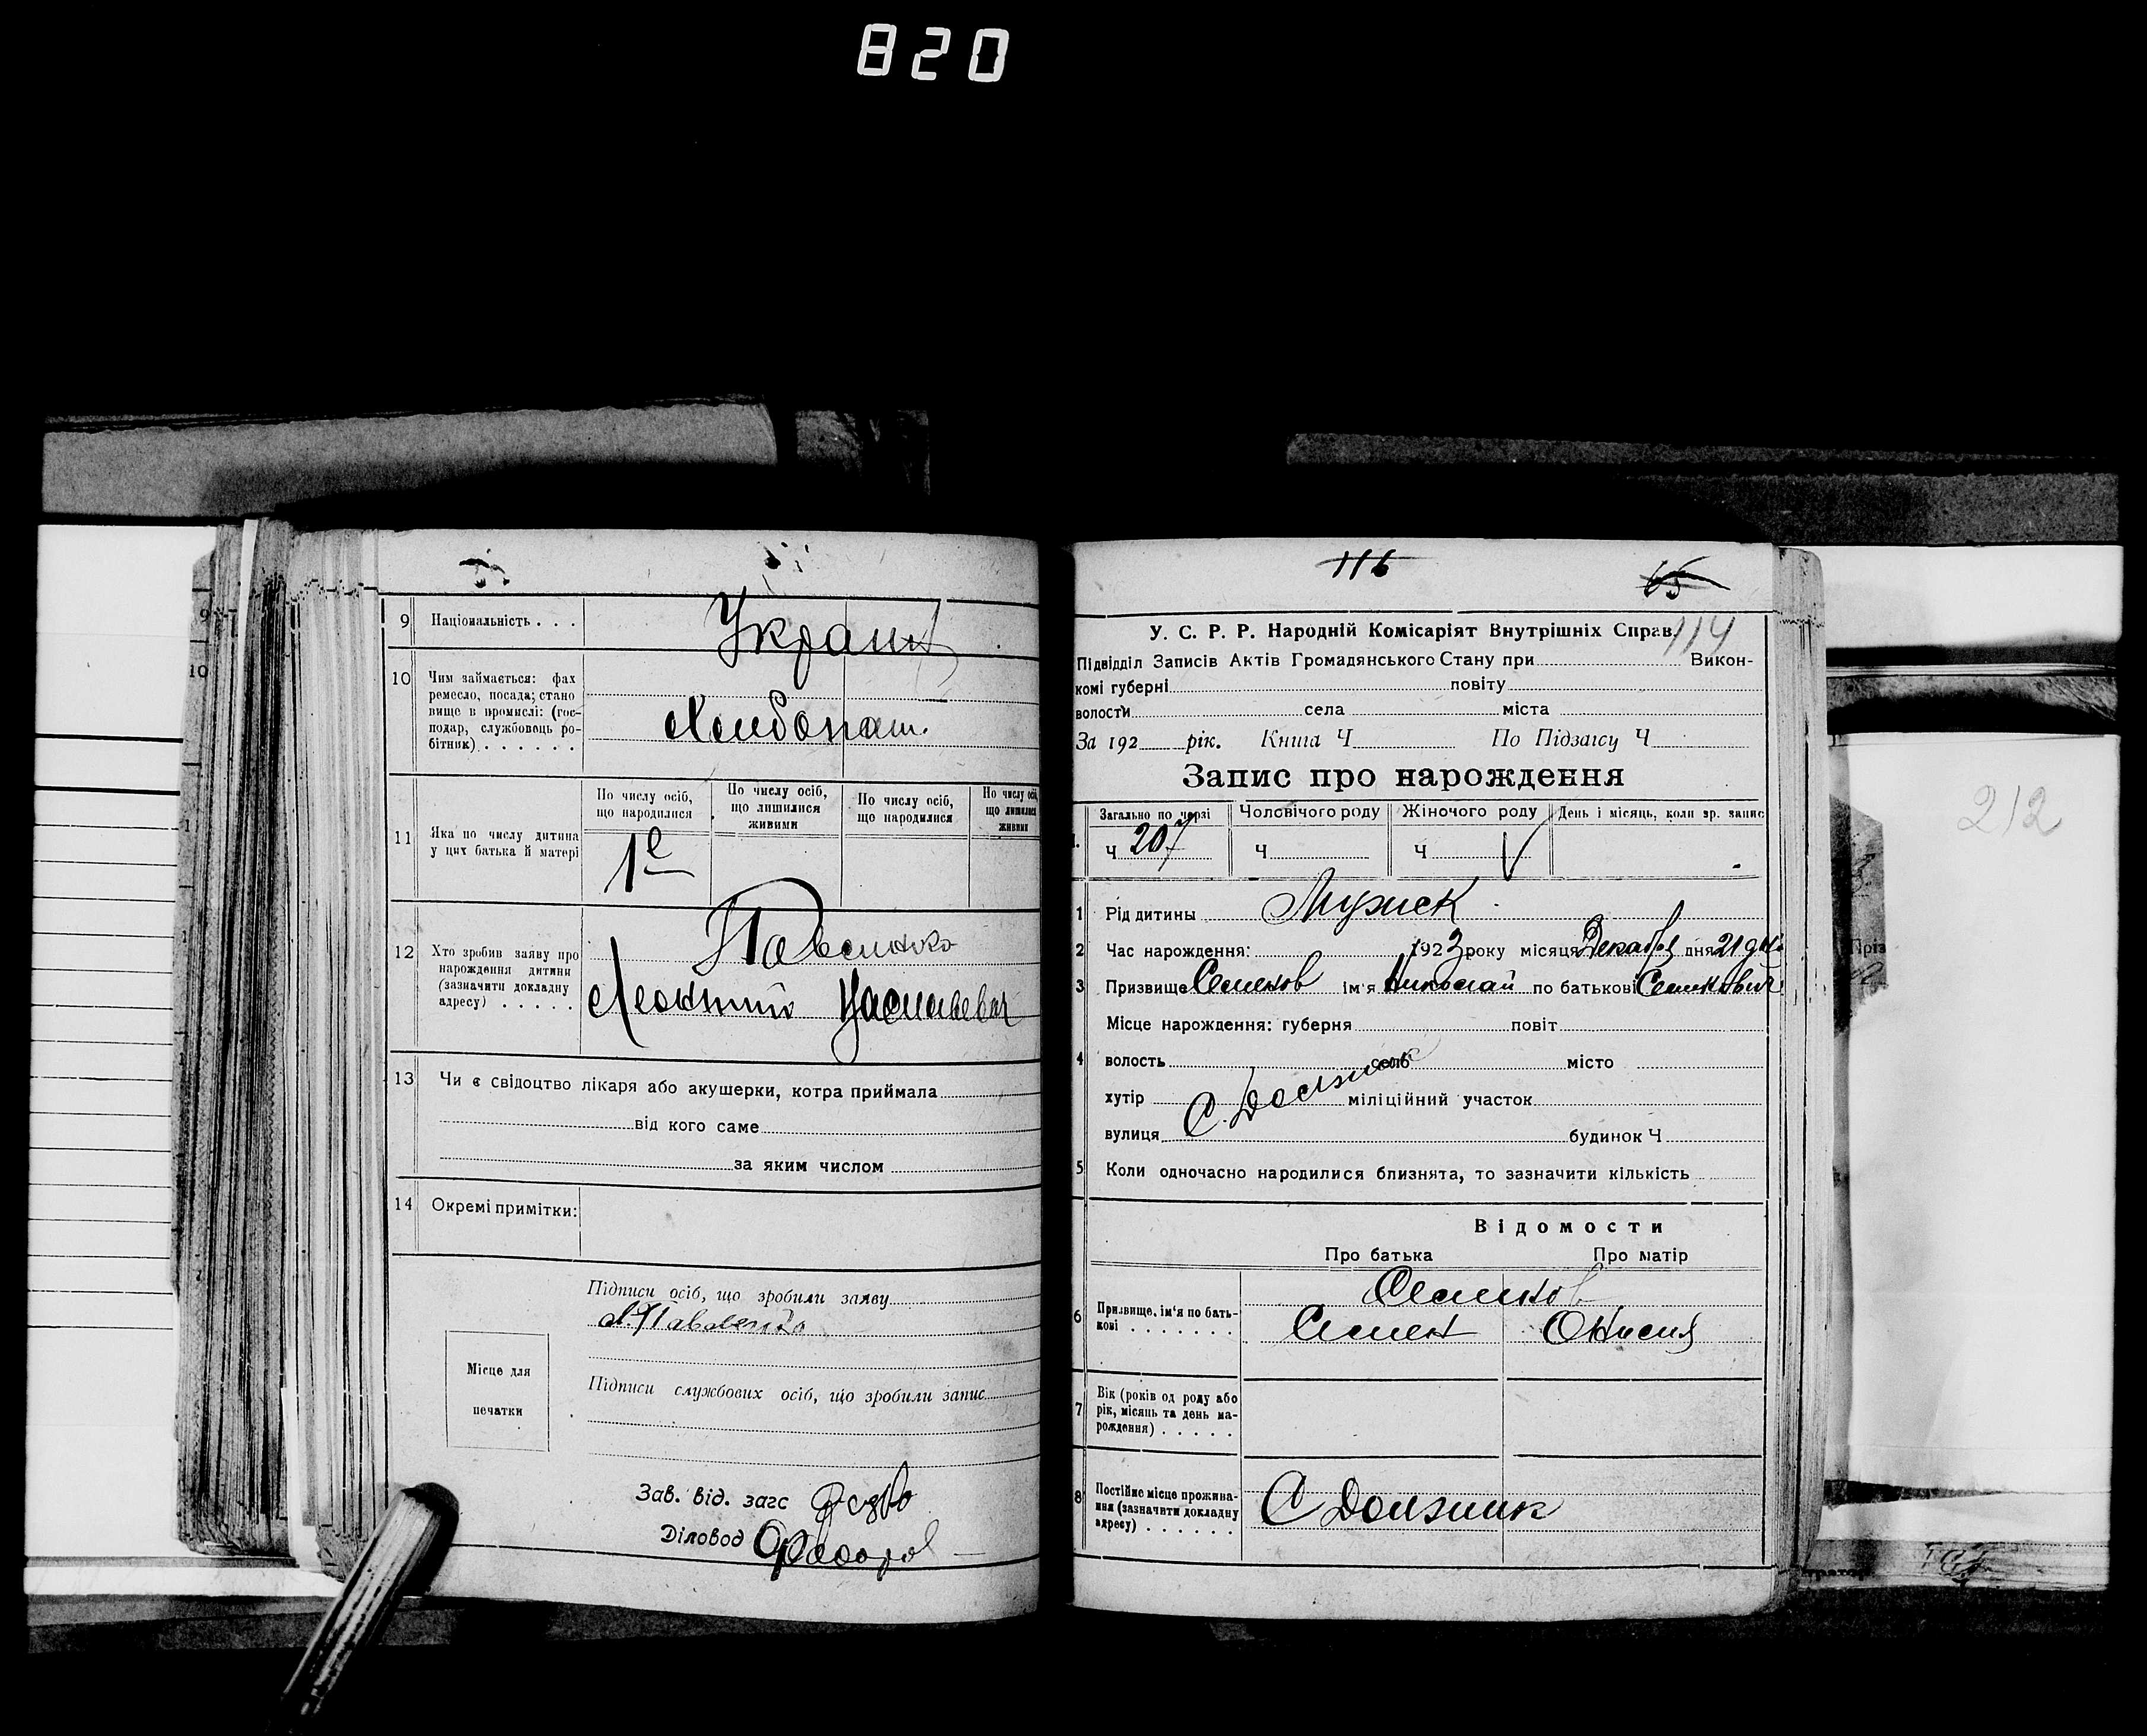 820
9 Національність . . .
Украин
10 Чим займається: фах
ремесло, посада; стано
вище в промислі: (гос-
подар, службовець ро-
бітник) . . . . . .
Хлебопаш.
11 Яка по числу дитина
у цих батька й матері
По числу осіб,
що народилися
По числу осіб,
що лишилися
живими
По числу осіб,
що народилися
По числу осіб,
що лишилися
живими
1е
12 Хто зробив заяву про
нарождення дитини
(зазначити докладну
адресу) . . . . .
Павленко
13 Чи є свідоцтво лікаря або акушерки, котра приймала
від кого саме
за яким числом
14 Окремі примітки:
Підписи осіб, що зробили заяву
Павленко
Місце для
печатки
Підписи службових осіб, що зробили запис
Зав. від. загс
Діловод
116
65
114
У. С. Р. Р. Народній Комісаріят Внутрішніх Справ
Підвідділ Записів Актів Громадянського Стану при Викон-
комі губерні повіту
волости села міста
За 192 рік. Книга Ч По Підзагсу Ч
Запис про нарождення
Загально по черзі Чоловічого роду Жіночого роду День і місяць, коли зр. запис
1. Ч 207 Ч Ч
1 Рід дитины Мужск
2 Час нарождення: 1923 року місяця Декабря дня 21 дня
3 Призвище Семенов ім'я Николай по батькові Семенович
Місце нарождення: губерня повіт
4 волость село місто
хутір С. Должик міліційний участок
вулиця будинок Ч
5 Коли одночасно народилися близнята, то зазначити кількість
Відомости
Про батька Про матір
6 Призвище, ім'я по бать-
кові . . . . . . .
Семенов
Семен Онисия
7 Вік (років од роду або
рік, місяць та день на-
рождення) . . . . .
8 Постійне місце прожива-
ння (зазначити докладну
адресу) . . . . . .
С Должик
212